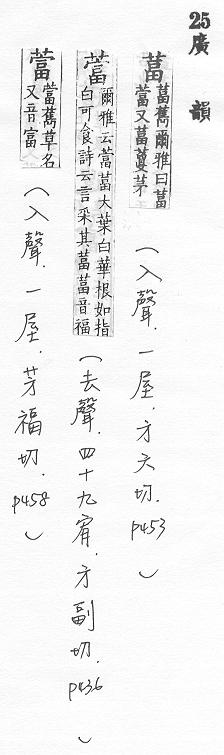 25廣韻
葍 葍藑爾雅曰葍
葍又葍藑茅
(入聲.一屋.方六切.p453)
葍 爾雅云葍葍大葉白華根如指
白可食詩云言采其葍葍音福
(去聲.四十九宥.方副切.p436)
葍 葍蕮草名
又音富
(入聲.一屋.芳福切.p458)